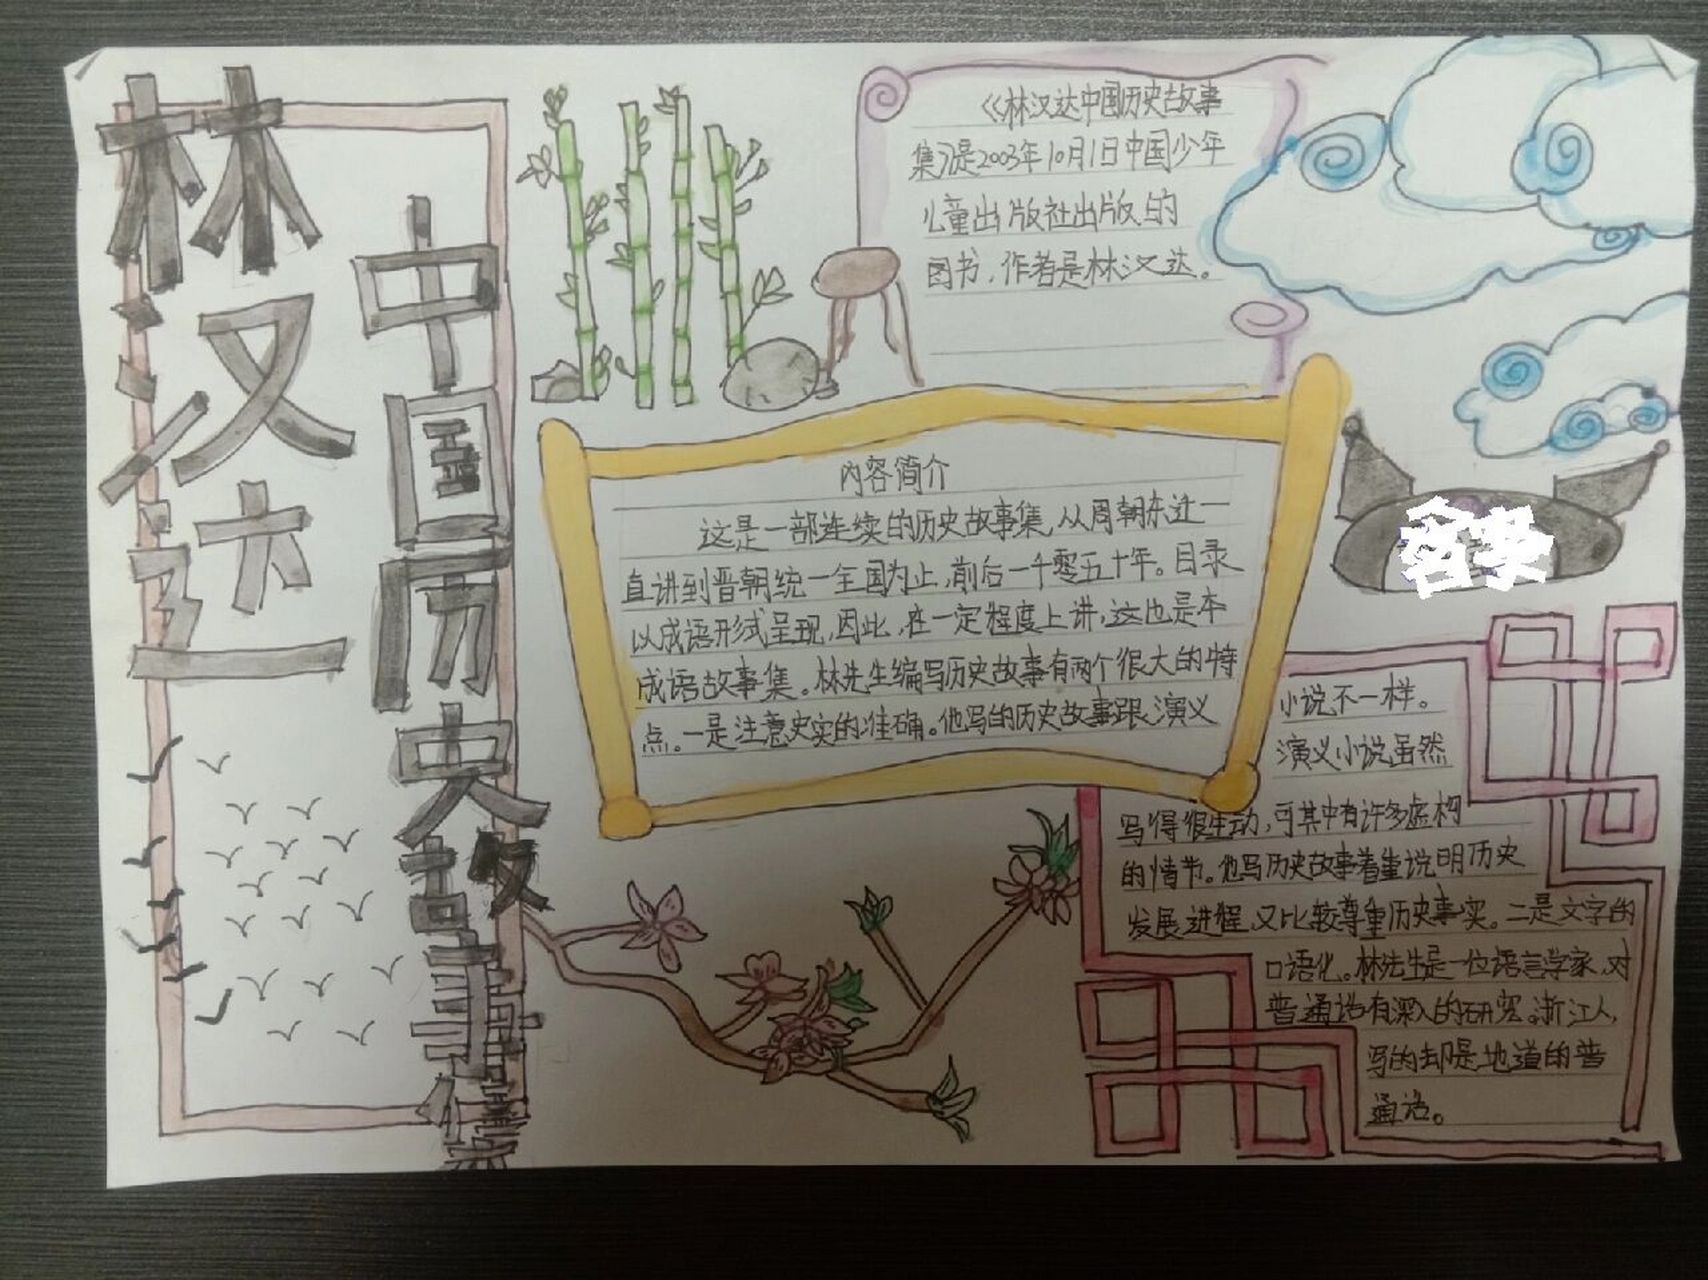 林汉达
中国历史故事集
《林汉达中国历史故事
集》是2003年10月1日中国少年
儿童出版社出版的
图书，作者是林汉达。
内容简介
这是一部连续的历史故事集，从周朝东迁一
直讲到晋朝统一全国为止，前后一千零五十年。目录
以成语形式呈现，因此，在一定程度上讲，这也是本
成语故事集。林先生编写历史故事有两个很大的特
点。一是注意史实的准确。他写的历史故事跟演义
小说不一样。
演义小说虽然
写得很生动，可其中有许多虚构
的情节。他写历史故事着重说明历史
发展进程，又比较尊重历史事实。二是文字的
口语化。林先生是一位语言学家，对
普通话有深入的研究。浙江人，
写的却是地道的普
通话。